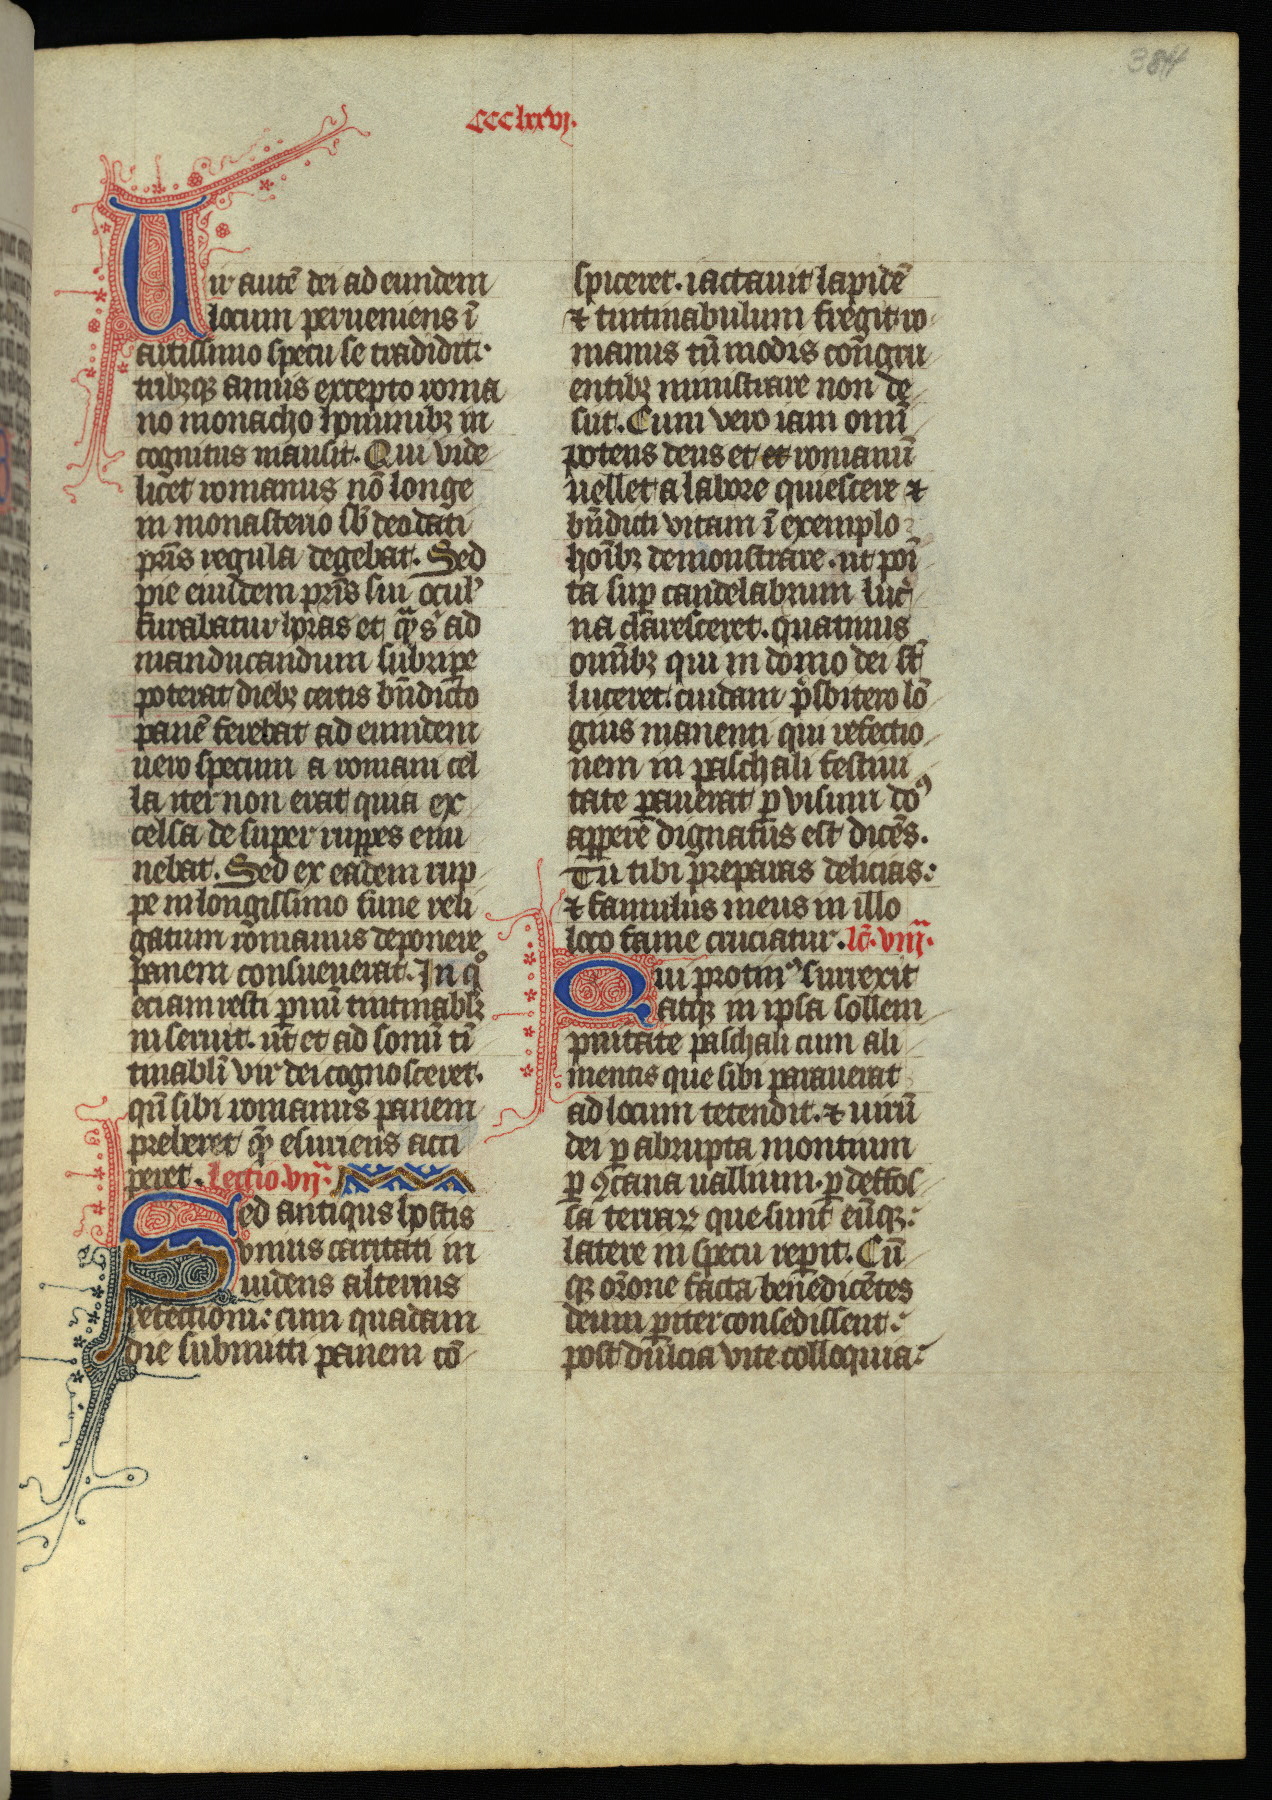 384
CCClxxvj.
Uir autē dei ad eundem
locum perueniens ī
artissimo specu se tradidit.
tribꝫqꝫ annis excepto roma
no monacho hominibꝫ in
cognitus mansit. Qui vide
licet romanus nō longe
in monasterio sb̄ deodati
pr̄is regula degebat. Sed
pie eiusdem pr̄is sui ocul'
furabatur horas et ad
manducandum subripe
poterat diebꝫ certis bn̄dicto
panē ferebat ad eumdem
uero specum a romani cel
la iter non erat quia ex
celsa de super ruppes emi
nebat. Sed ex eadem rup
pe in longissimo fune reli
gatum romanus deponere
panem consueuerat. In qͦ
eciam resti paruū tintinabl̄
inseruit. ut et ad sonū ti
tinablī vir dei cognosceret.
qn̄ sibi romanus panem
preberet quē esuriens acci
peret. Lectio. vij.
Sed antiqus hostis
vnius caritati in
uidens alterius
refectioni: cum quadam
die submitti panem cō
spiceret. iactauit lapidē
⁊ tintinabulum fregit. ro
manus tn̄ modis congru
entibꝫ ministrare non de
siit. Cum vero iam omī
potens deus et et romanū
uellet a labore quiescere ⁊
bn̄dicti vitam ī exemplo
hoībꝫ demonstrare. ut posi
ta suꝑ candelabrum luc̓
na claresceret. quatinus
omībꝫ qui in domo dei st̄
luceret. cuidam p̄sbitero lō
gius manenti qui refectio
nem in paschali festiui
tate parauerat ꝑ visum dō
apparere dignatus est dicēs.
Tu tibi preparas delicias:
⁊ famulus meus in illo
loco fame cruciatur. lc̄. viij.
Qui protinꝰ surrexit
atqꝫ in ipsa sollem
pnitate paschali cum ali
mentis que sibi parauerat
ad locum tetendit. ⁊ uirū
dei ꝑ abrupta montium
ꝑ ꝯcaua uallium. ꝑ deffos
sa terraꝝ que sunt eūqꝫ:
latere in specu reperit. Cū
qꝫ or̄one facta benedicētes
deum ꝑiter consedissent.
post dulcia vite colloquia: